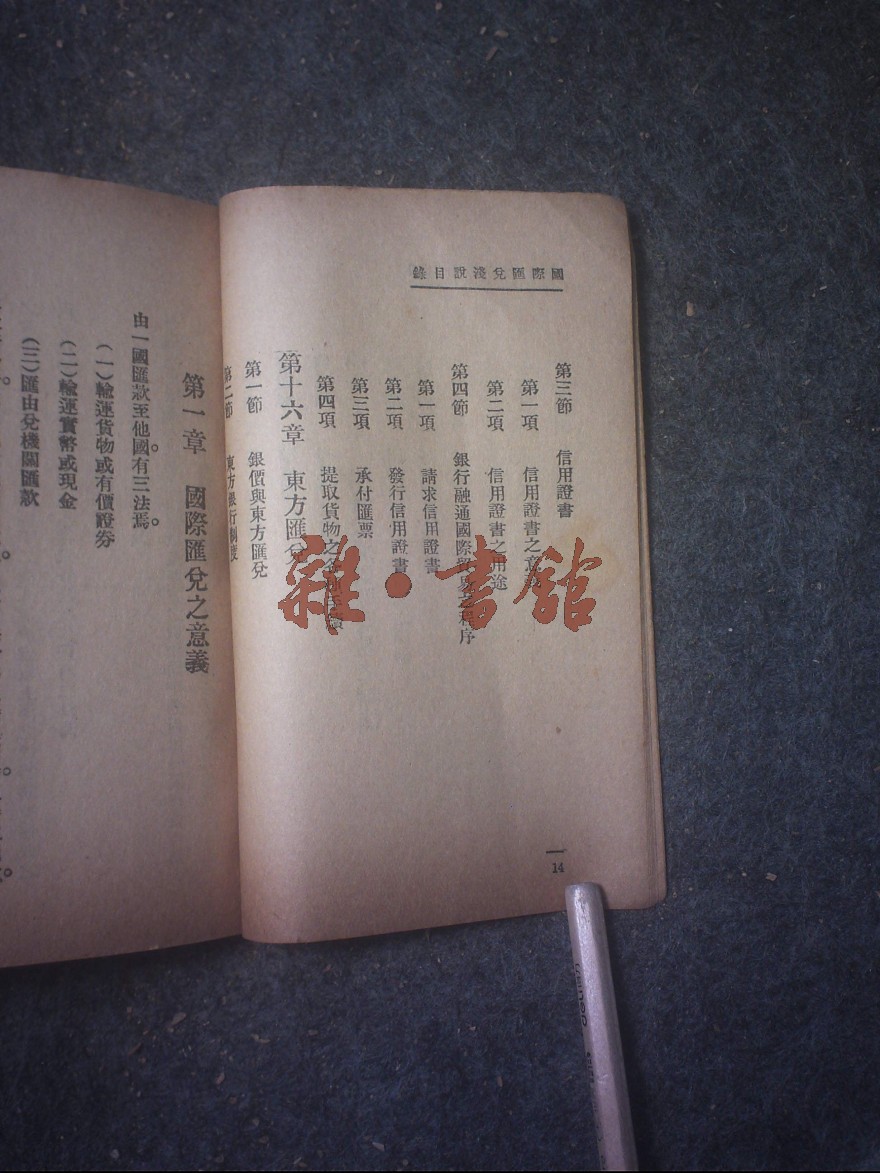 國際匯兌淺說目錄
第三節 信用證書
第一項 信用證書之意
第二項 信用證書之用途
第四節 銀行融通國際貿易之程序
第一項 請求信用證書
第二項 發行信用證書
第三項 承付匯票
第四項 提取貨物之
第十六章 東方匯兌
第一節 銀價與東方匯兌
第二節 東方銀行制度
14
第一章 國際匯兌之意義
由一國匯款至他國有三法焉。
(一)輸運貨物或有價證券
(二)輸運實幣或現金
(三)匯由兌機關匯款
雜·書館